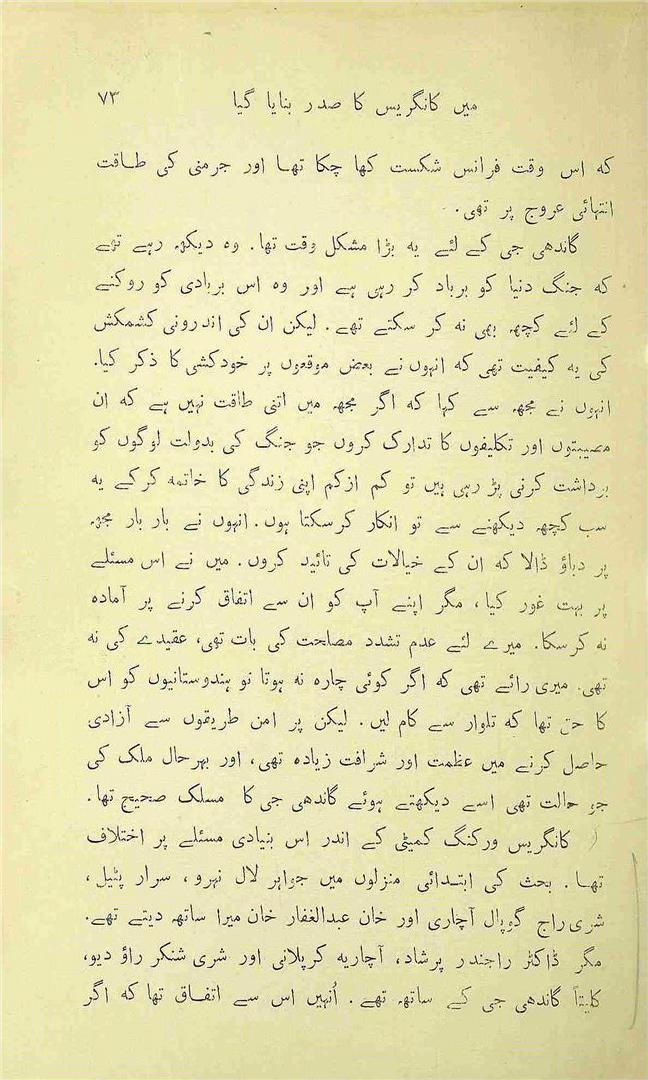 میں کانگریس کا صدر بنایا گیا ۷۳
کہ اس وقت فرانس شکست کھا چکا تھا اور جرمنی کی طاقت
انتہائی عروج پر تھی۔
گاندھی جی کے لئے یہ بڑا مشکل وقت تھا۔ وہ دیکھ رہے تھے
کہ جنگ دنیا کو برباد کر رہی ہے اور وہ اس بربادی کو روکنے
کے لئے کچھ بھی نہ کر سکتے تھے۔ لیکن ان کی اندرونی کشمکش
کی یہ کیفیت تھی کہ انہوں نے بعض موقعوں پر خودکشی کا ذکر کیا۔
انہوں نے مجھ سے کہا کہ اگر مجھ میں اتنی طاقت نہیں ہے کہ ان
مصیبتوں اور تکلیفوں کا تدارک کروں جو جنگ کی بدولت لوگوں کو
برداشت کرنی پڑ رہی ہیں تو کم ازکم اپنی زندگی کا خاتمہ کرکے یہ
سب کچھ دیکھنے سے تو انکار کرسکتا ہوں۔ انہوں نے بار بار مجھ
پر دباؤ ڈالا کہ ان کے خیالات کی تائید کروں۔ میں نے اس مسئلے
پر بہت غور کیا، مگر اپنے آپ کو ان سے اتفاق کرنے پر آمادہ
نہ کرسکا۔ میرے لئے عدم تشدد مصلحت کی بات تھی، عقیدے کی نہ
تھی۔ میری رائے تھی کہ اگر کوئی چارہ نہ ہوتا تو ہندوستانیوں کو اس
کا حق تھا کہ تلوار سے کام لیں۔ لیکن پر امن طریقوں سے آزادی
حاصل کرنے میں عظمت اور شرافت زیادہ تھی، اور بہرحال ملک کی
جو حالت تھی اسے دیکھتے ہوئے گاندھی جی کا مسلک صحیح تھا۔
کانگریس ورکنگ کمیٹی کے اندر اس بنیادی مسئلے پر اختلاف
تھا۔ بحث کی ابتدائی منزلوں میں جواہر لال نہرو، سرار پٹیل،
شری راج گوپال آچاری اور خان عبدالغفار خان میرا ساتھ دیتے تھے۔
مگر ڈاکٹر راجندر پرشاد، آچاریہ کرپلانی اور شری شنکر راؤ دیو،
کلیتاً گاندھی جی کے ساتھ تھے۔ اُنہیں اس سے اتفاق تھا کہ اگر